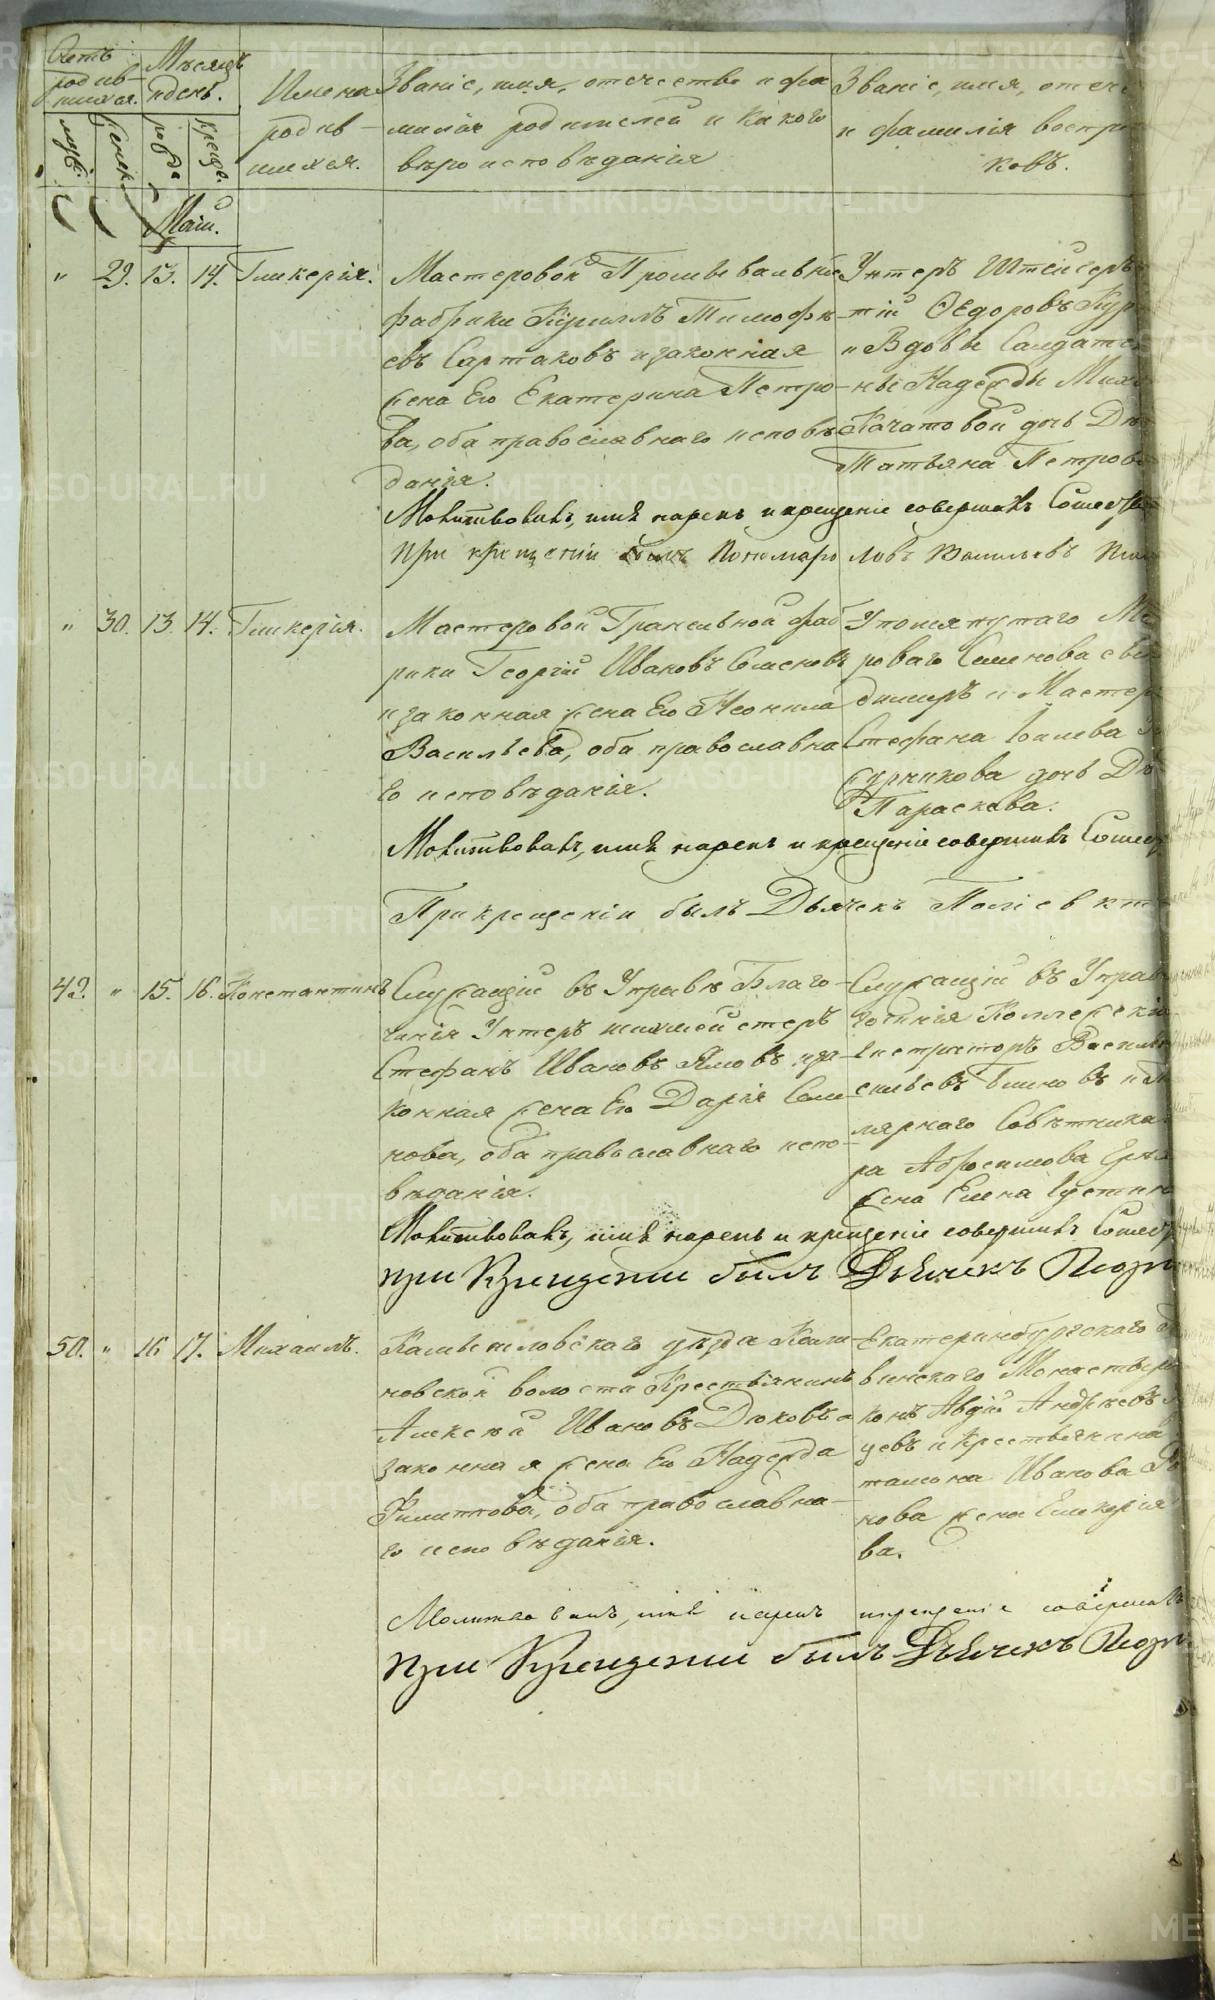 Счетъ родив- шихся.
Мѣсяцъ и день.
Имена родив- шихся.
Званіе, имя, отчество и фа милія родителей и какого вѣроисповѣданія
Званіе, имя, отече и фамилія воспрі ковъ.
муж.
женск.
рожд.
крещ.
Маій.
" 29. 13. 14. Гликерія.
Мастеровой Промывальной
фабрики Кѵриллъ Тимофѣ-
евъ Сартаковъ и законная
жена Его Екатерина Петро-
ва, оба православнаго исповѣ
данія.
Унтеръ Штейгеръ
тій Ѳедоровъ
и Вдовы Солдатс
ны Надежды Миха
Качатовой дочь Дѣ
Татьяна Петрова
Молитвовалъ, имя нарекъ и крещеніе совершилъ
При крещеніи былъ Пономарь
" 30. 13. 14. Гликерія.
Мастеровой Гранильной фаб
рики Георгій Ивановъ Семеновъ
и законная жена Его Неонила
Васильева, оба православна
го исповѣданія.
Упомянутаго Ма
роваго Семенова сы
димиръ и Мастер
Стефана
дочь Дѣ
Параскева.
Молитвовалъ, имя нарекъ и крещеніе совершилъ
При крещеніи былъ Дьячекъ Поліевкт
49. " 15. 16. Константинъ
Служащій въ Управѣ Благо-
чинія Унтеръ шихмейстеръ
Стефанъ Ивановъ Ямовъ и за-
конная жена Его Дарія Семе
нова, оба православнаго испо-
вѣданія.
Служащій въ Управ
гочинія Коллежскій
гистраторъ Василій
сильевъ
лярнаго Совѣтника
ра Абросимова
жена Елена Іустин
Молитвовалъ, имя нарекъ и крещеніе совершилъ
при Крещении былъ Дьячекъ
50. " 16 17. Михаилъ.
Камышловскаго уѣзда Кали-
новской волости Крестьянинъ
Алексѣй Ивановъ Дюковъ и
законная жена Его Надежда
Филиппова, оба православна-
го исповѣданія.
Екатеринбургскаго
винскаго Монастыря
конъ Авдій Андреевъ
цевъ и крестьянина
Иванова
нова жена Гликерія
ва.
Молитвовалъ, имя нарекъ и крещеніе совершилъ
при Крещении былъ Дьячекъ
METRIKI.GASO-URAL.RU